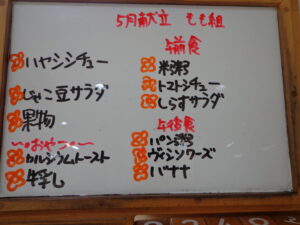 5月献立 もも組
ハヤシシチュー
じゃこ豆サラダ
果物
〜おやつ〜
カルシウムトースト
牛乳
午前食
米粥
トマトシチュー
しらすサラダ
午後食
パン粥
ヴィシソワーズ
バナナ